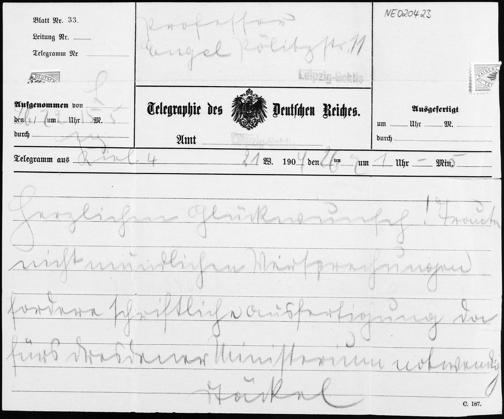 Blatt Nr. 33.
Leitung Nr.
Telegramm Nr.
Professor
Engel Pölitzstr. 11
NE020423
Leipzig-Gohlis
Aufgenommen von
den um Uhr M.
durch
Telegraphie des Deutschen Reiches.
Amt
Ausgefertigt
um Uhr M.
durch
Telegramm aus Kiel 4 21 W. 190 den 26 um 1 Uhr - 5 Min.
Herzlichen Glückwunsch! Traue
nicht mündlichen Versprechungen
fordere schriftliche ausfertigung da
fürs dresdener Ministerium notwendig
Stäckel
C. 187.